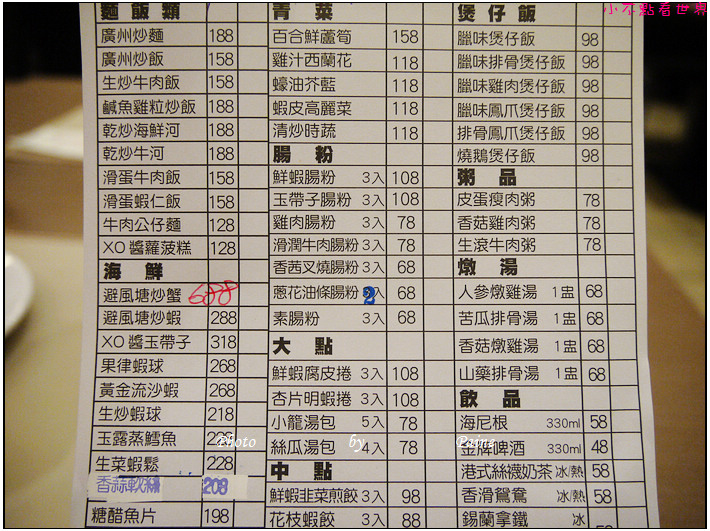 小不點看世界
麵飯類
廣州炒麵 188
廣州炒飯 158
生炒牛肉飯 188
鹹魚雞粒炒飯 188
乾炒海鮮河 188
乾炒牛河 188
滑蛋牛肉飯 188
滑蛋蝦仁飯 188
牛肉公仔麵 128
XO醬蘿菠糕 128
海鮮
避風塘炒蟹 688
避風塘炒蝦 288
XO醬玉帶子 318
果律蝦球 268
黃金流沙蝦 268
生炒蝦球 218
玉露蒸鱈魚
生菜蝦鬆 228
香蒜軟絲 208
糖醋魚片 198
青菜
百合鮮蘆筍 158
雞汁西蘭花 118
蠔油芥藍 118
蝦皮高麗菜 118
清炒時蔬 118
腸粉
鮮蝦腸粉 3入 108
玉帶子腸粉 3入 108
雞肉腸粉 3入 78
滑潤牛肉腸粉 3入 78
香茜叉燒腸粉 3入 68
蔥花油條腸粉 2入 68
素腸粉 3入 68
大點
鮮蝦腐皮捲 3入 108
杏片明蝦捲 3入 108
小籠湯包 5入 78
絲瓜湯包 4入 78
中點
鮮蝦韭菜煎餃 3入 98
花枝蝦餃 3入 88
煲仔飯
臘味煲仔飯 98
臘味排骨煲仔飯 98
臘味雞肉煲仔飯 98
臘味鳳爪煲仔飯 98
排骨鳳爪煲仔飯 98
燒鵝煲仔飯 98
粥品
皮蛋瘦肉粥 78
香菇雞肉粥 78
生滾牛肉粥 78
燉湯
人參燉雞湯 1盅 68
苦瓜排骨湯 1盅 68
香菇燉雞湯 1盅 68
山藥排骨湯 1盅 68
飲品
海尼根 330ml 58
金牌啤酒 330ml 48
港式絲襪奶茶 冰/熱 58
香滑鴛鴦 冰/熱 58
錫蘭拿鐵 冰
Photo by